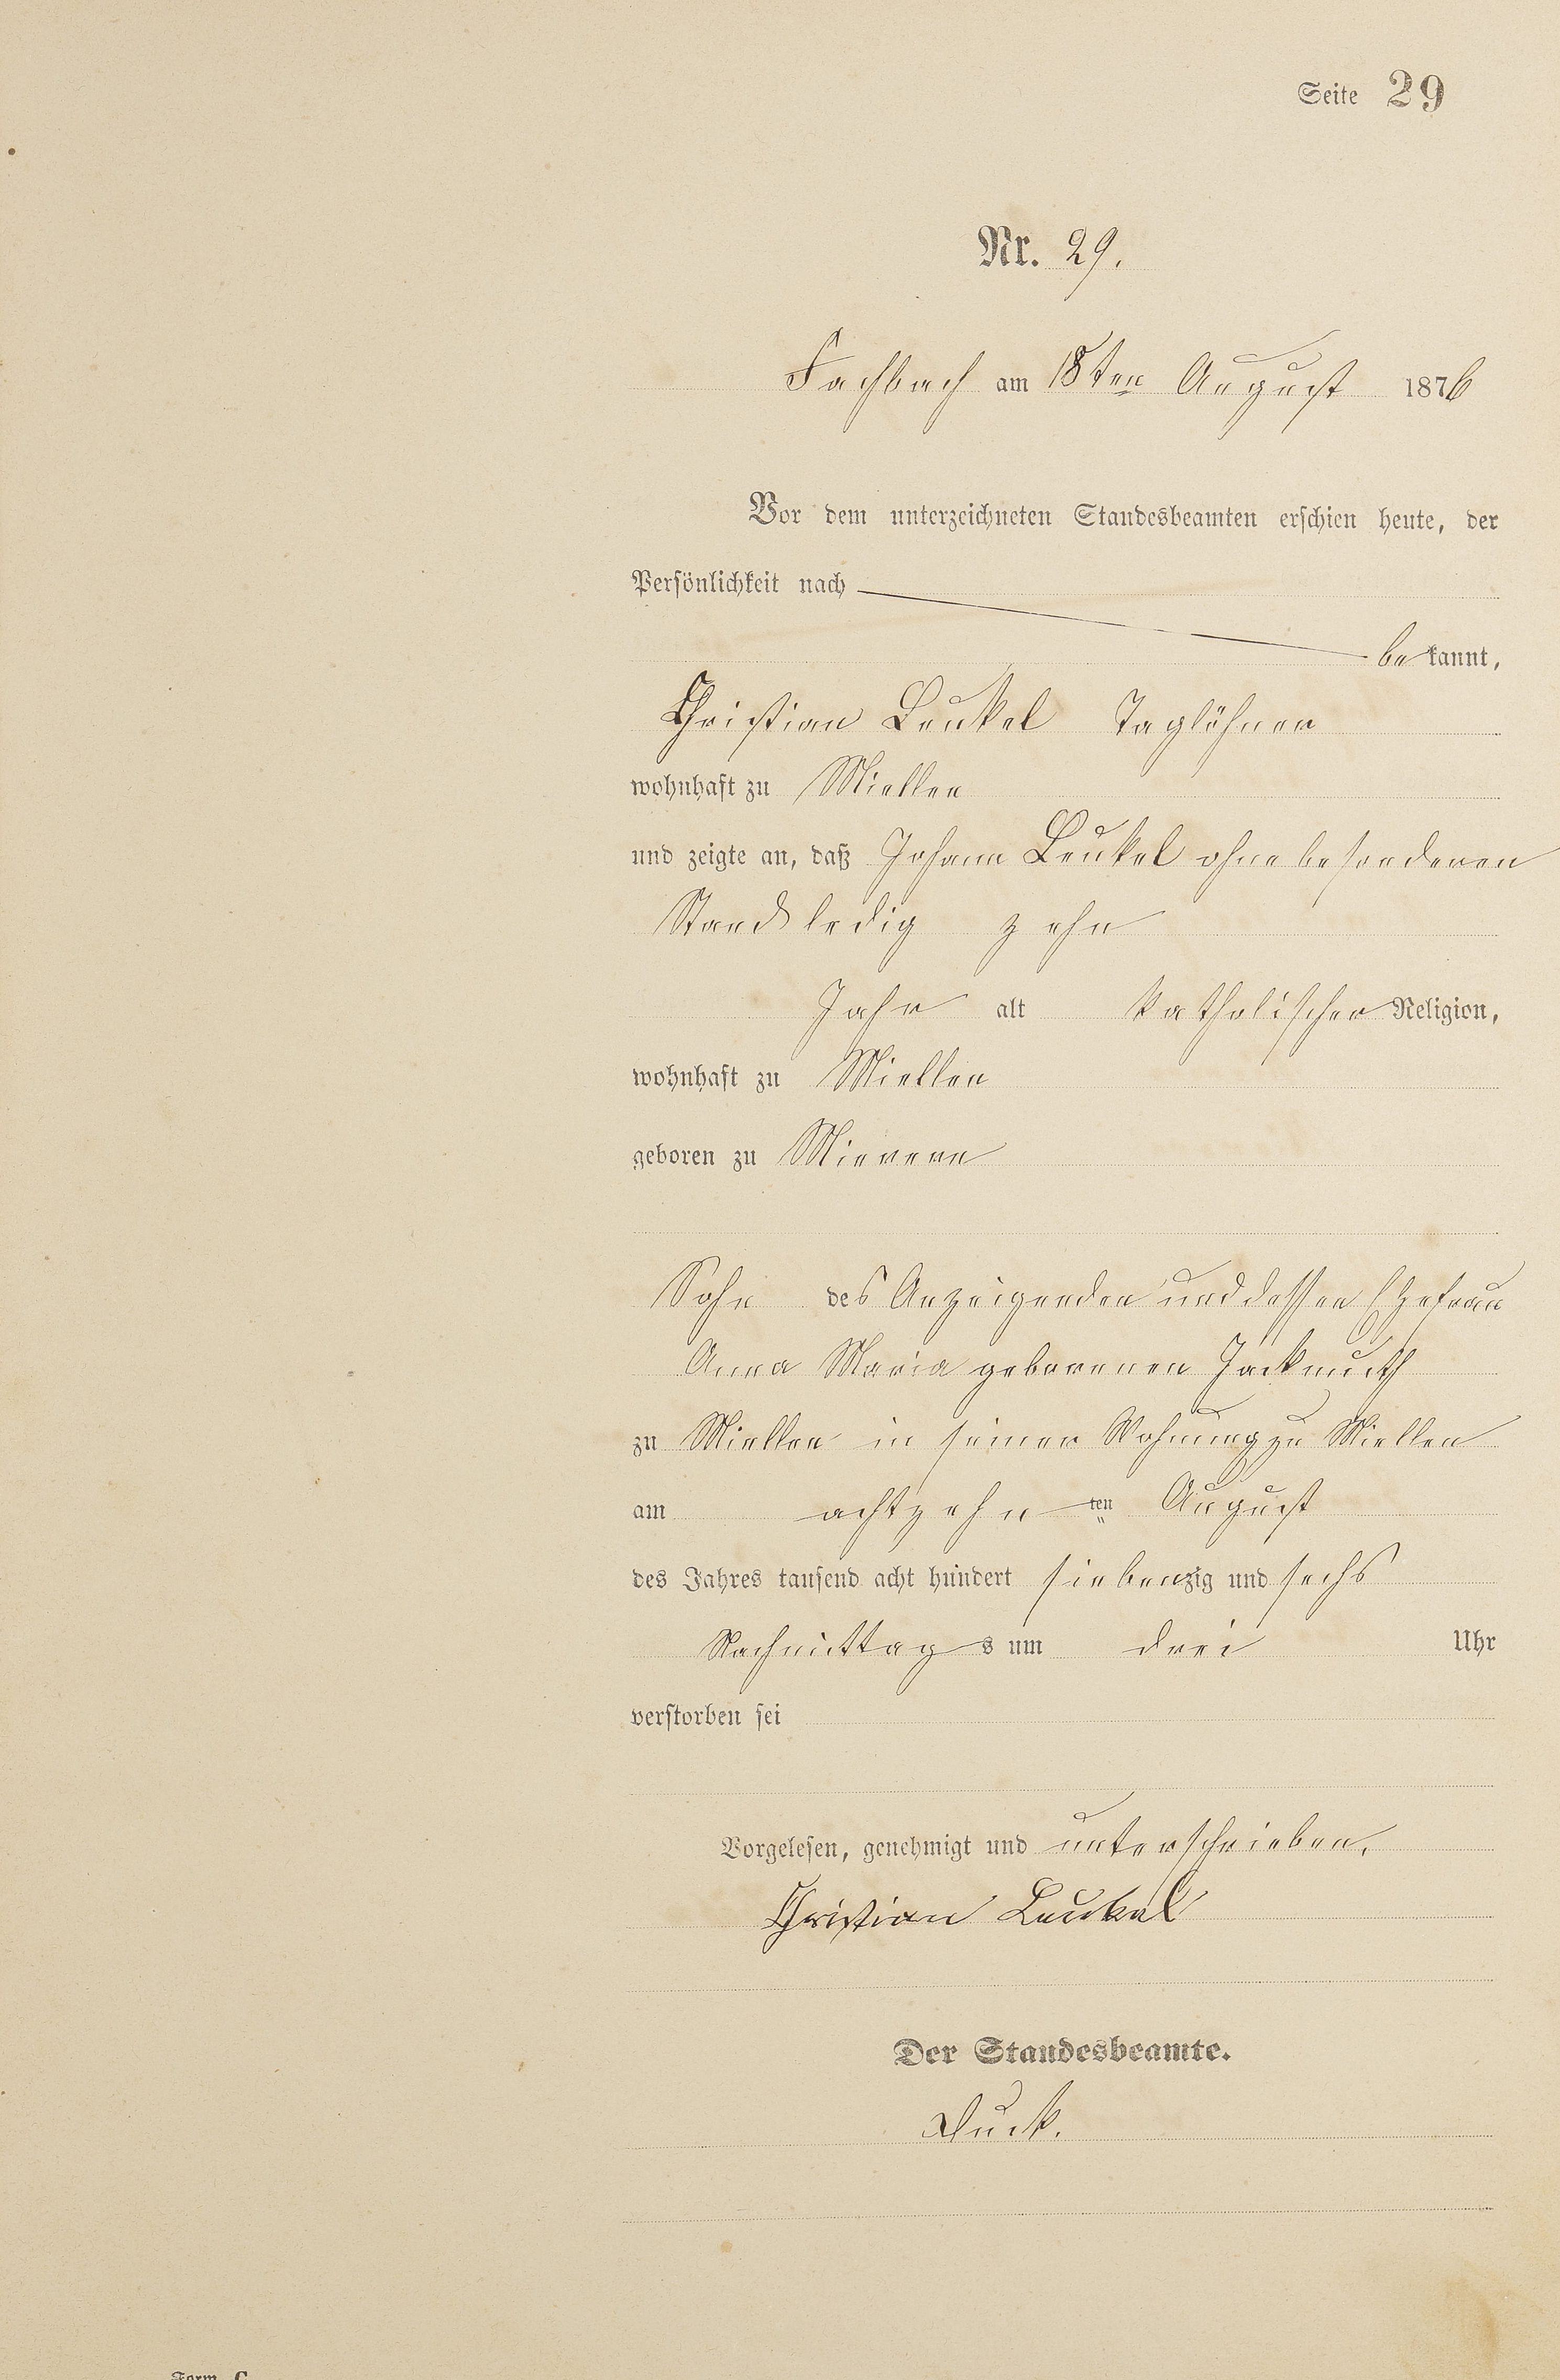 Seite 29
Nr. 29.
Fachbach am 18ten August 1876
Vor dem unterzeichneten Standesbeamten erschien heute, der
Persönlichkeit nach
bekannt,
Christian Leukel Taglöhner
wohnhaft zu Miellen
und zeigte an, daß Johann Leukel ohne besonderen
Stand ledig zehn
Jahr alt katholischer Religion,
wohnhaft zu Miellen
geboren zu
Sohn des Anzeigenden und dessen Ehefrau
Anna Maria geborenen Jackmuth
zu Miellen in seiner Wohnung zu Miellen
am achtzehnten August
des Jahres tausend acht hundert siebenzig und sechs
Nachmittags um drei Uhr
verstorben sei
Vorgelesen, genehmigt und unterschrieben.
Christian Leukel
Der Standesbeamte.
Duck.
Form. C